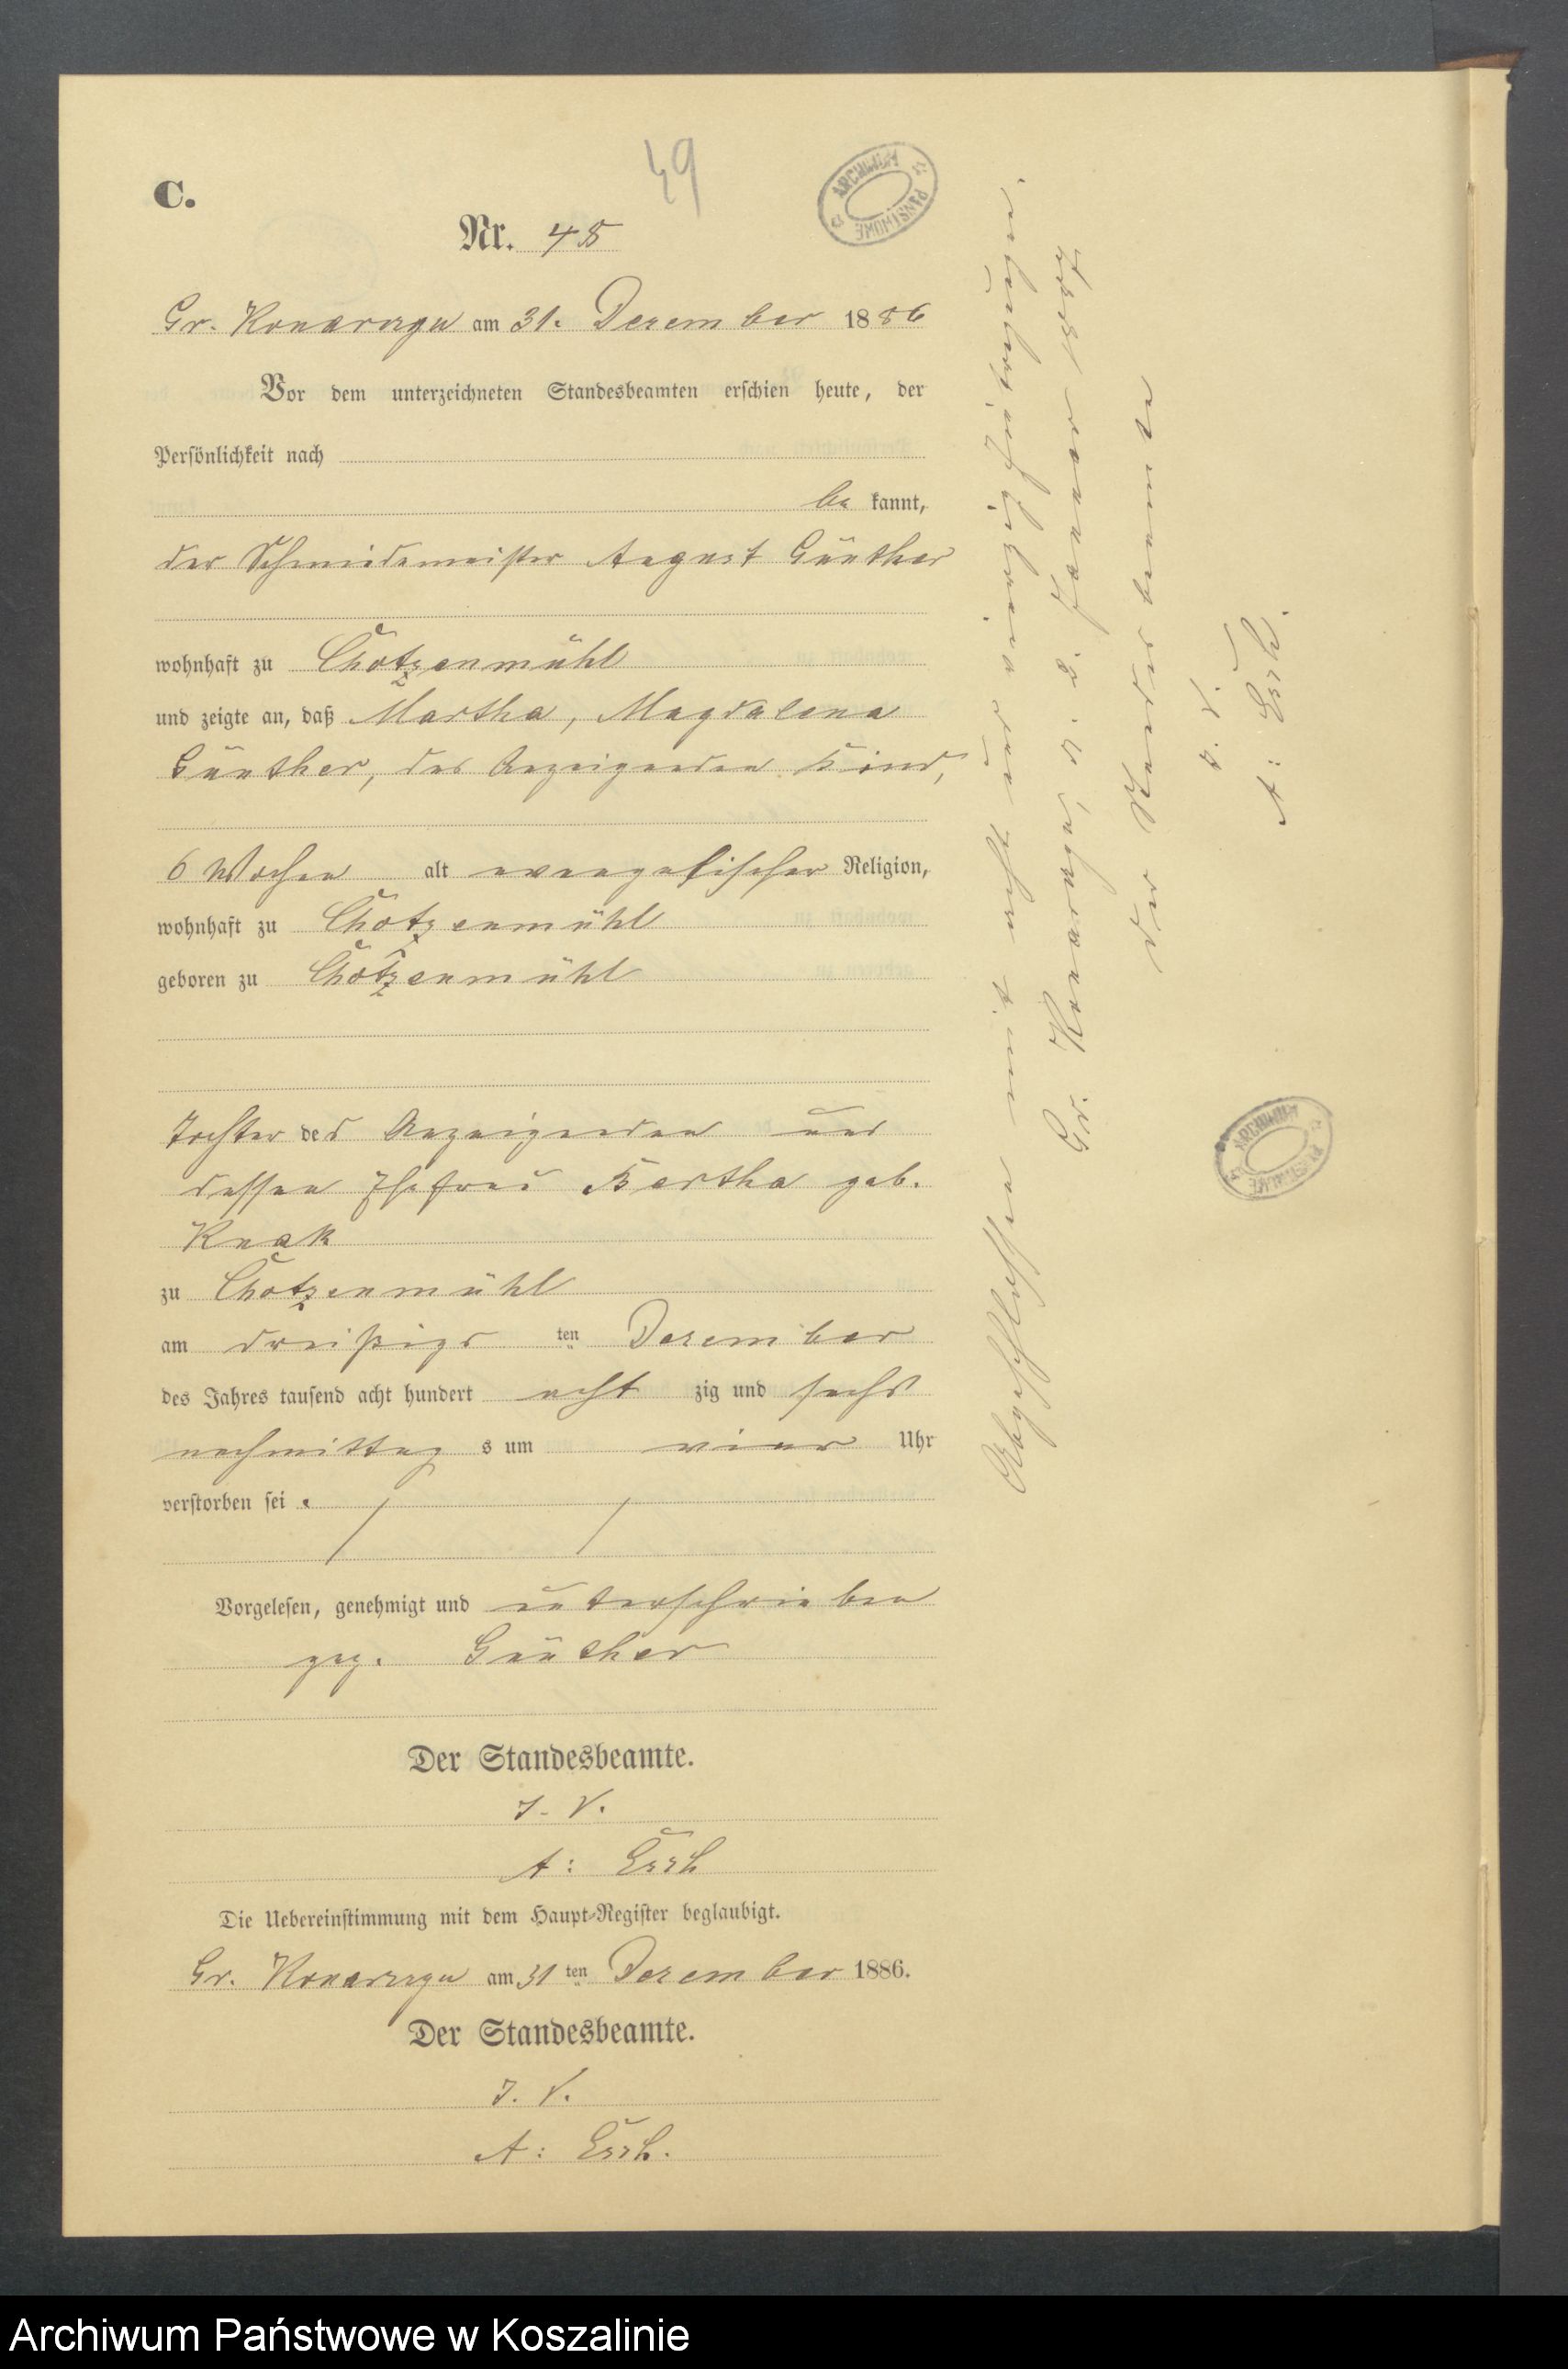 49
C.
ARCHIWUM PAŃSTWOWE
Nr. 48
Gr. Konarczyn am 31. Dezember 1886
Vor dem unterzeichneten Standesbeamten erschien heute, der
Persönlichkeit nach
be kannt,
der Schmiedemeister August Günther
wohnhaft zu Chotzenmühl
und zeigte an, daß Martha, Magdalena
Günther, des Anzeigenden Kind,
6 Wochen alt evangelischer Religion,
wohnhaft zu Chotzenmühl
geboren zu Chotzenmühl
Tochter des Anzeigenden und
dessen Ehefrau Bertha geb.
Knak
zu Chotzenmühl
am dreißigs ten Dezember
des Jahres tausend acht hundert acht zig und sechs
nachmittag s um vier Uhr
verstorben sei.
Vorgelesen, genehmigt und unterschrieben
gez. Günther
Der Standesbeamte.
J. V.
A:
Die Uebereinstimmung mit dem Haupt-Register beglaubigt.
Gr. Konarczyn am 31 ten Dezember 1886.
Der Standesbeamte.
J. V.
A:
Abgeschlossen mit acht und vierzig Eintragungen.
Gr. Konarczyn, d. 2. Januar 1887
Der Standesbeamte
J. V.
A:
ARCHIWUM PAŃSTWOWE
Archiwum Państwowe w Koszalinie